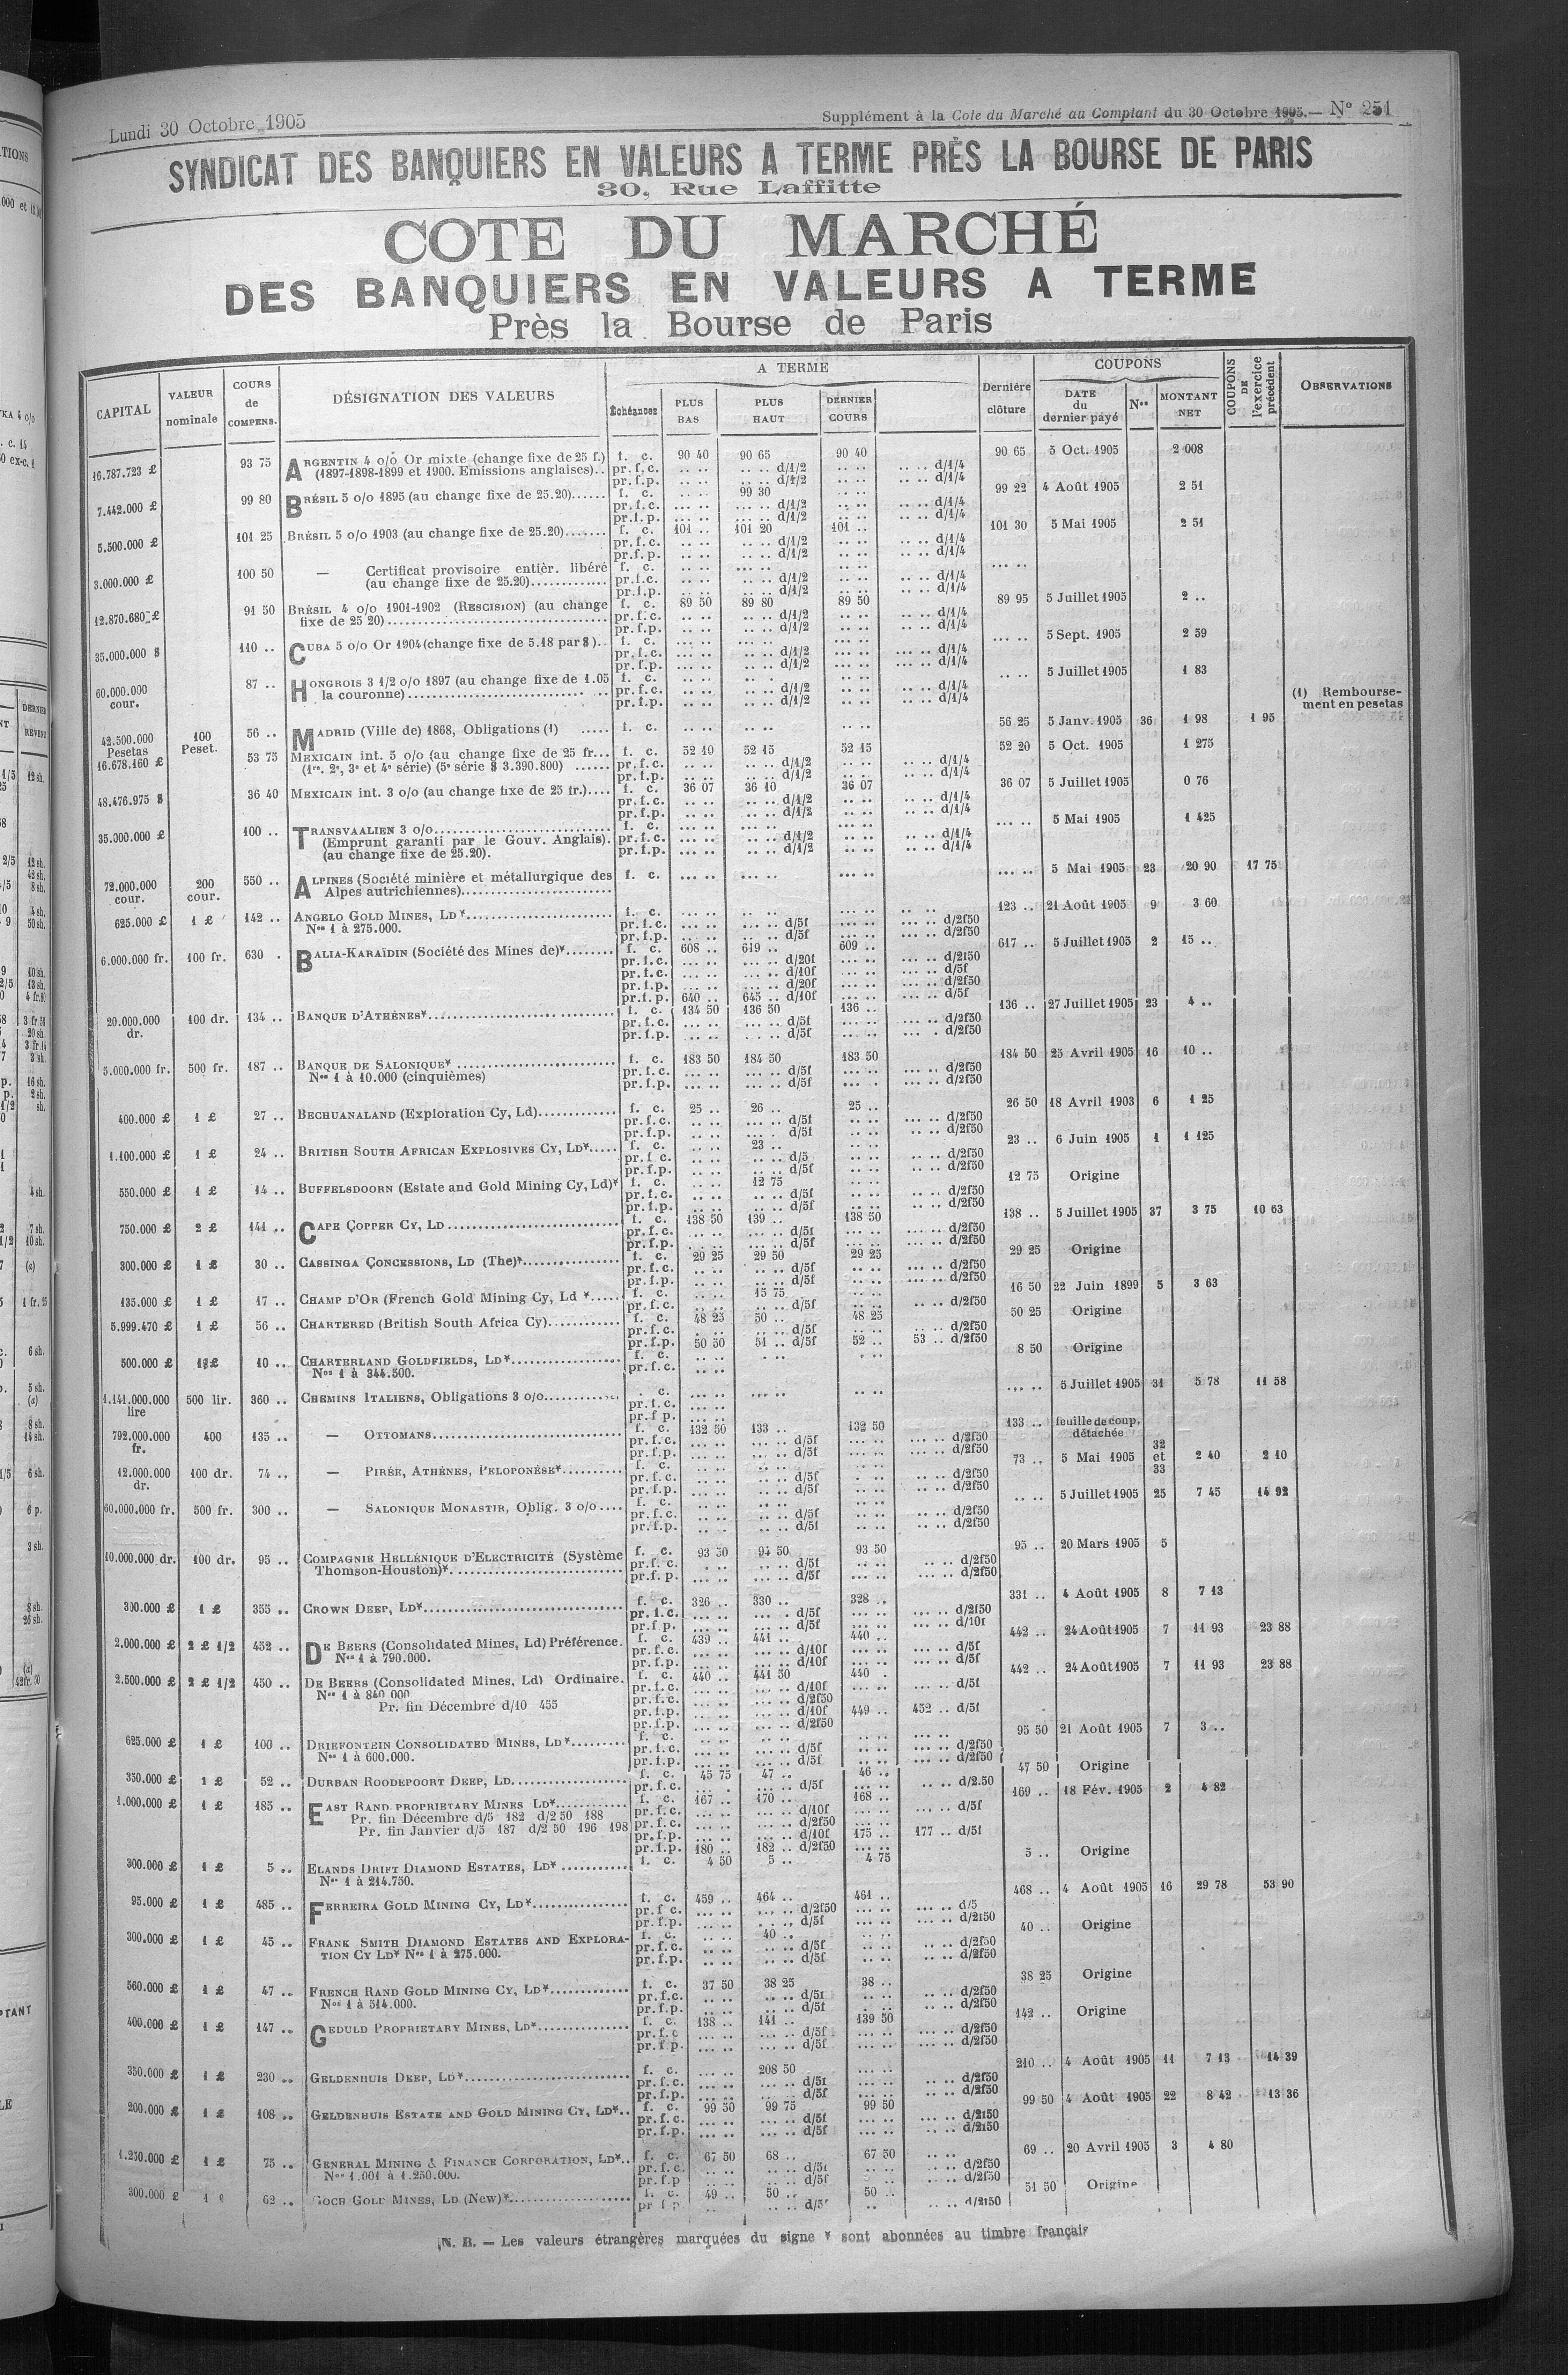 Lundi 30 Octobre 1905
Supplément à la Cote du Marché au Comptant du 30 Octobre 1905.— N° 251
SYNDICAT DES BANQUIERS EN VALEURS A TERME PRÈS LA BOURSE DE PARIS
30, Rue Laffitte
COTE DU MARCHÉ
DES BANQUIERS EN VALEURS A TERME
Près la Bourse de Paris
CAPITAL VALEUR nominale COURS de COMPENS. DÉSIGNATION DES VALEURS A TERME Échéances PLUS BAS PLUS HAUT DERNIER COURS Dernière clôture COUPONS DATE du dernier payé Nos MONTANT NET COUPONS DE l'exercice précédent OBSERVATIONS
16.787.723 £ 93 75 ARGENTIN 4 o/o Or mixte (change fixe de 25 f.) f. c. 90 40 90 65 90 40 90 65 5 Oct. 1905 2 008
(1897-1898-1899 et 1900. Emissions anglaises).. pr. f. c. .. .. .. .. d/1/2 .. .. .. .. d/1/4
pr. f. p. .. .. .. .. d/1/2 .. .. .. .. d/1/4
7.442.000 £ 99 80 BRÉSIL 5 o/o 1895 (au change fixe de 25.20)...... f. c. .. .. 99 30 .. .. 99 22 4 Août 1905 2 51
pr. f. c. ... .. ... .. d/1/2 .. .. .. .. d/1/4
pr. f. p. ... .. ... .. d/1/2 .. .. .. .. d/1/4
5.500.000 £ 101 25 BRÉSIL 5 o/o 1903 (au change fixe de 25.20)....... f. c. 101 .. 101 20 101 .. 101 30 5 Mai 1905 2 51
pr. f. c. .. .. .. .. d/1/2 .. .. .. .. d/1/4
pr. f. p. .. .. .. .. d/1/2 .. .. .. .. d/1/4
3.000.000 £ 100 50 — Certificat provisoire entièr. libéré f. c. .. .. ... .. .. .. ... ..
(au change fixe de 25.20)............. pr. f. c. .. .. .. .. d/1/2 .. .. .. .. d/1/4
pr. f. p. .. .. .. .. d/1/2 .. .. .. .. d/1/4
12.870.680 £ 91 50 BRÉSIL 4 o/o 1901-1902 (RESCISION) (au change f. c. 89 50 89 80 89 50 89 95 5 Juillet 1905 2 ..
fixe de 25 20).................................. pr. f. c. .. .. .. .. d/1/2 .. .. .. .. d/1/4
pr. f. p. .. .. .. .. d/1/2 .. .. .. .. d/1/4
35.000.000 $ 110 .. CUBA 5 o/o Or 1904 (change fixe de 5.18 par $).. f. c. ... .. ... .. ... .. ... .. 5 Sept. 1905 2 59
pr. f. c. ... .. .. .. d/1/2 ... .. ... .. d/1/4
pr. f. p. ... .. .. .. d/1/2 ... .. ... .. d/1/4
60.000.000 cour. 87 .. HONGROIS 3 1/2 o/o 1897 (au change fixe de 1.05 f. c. .. .. .. .. .. .. .. .. 5 Juillet 1905 1 83
la couronne)........................... .. pr. f. c. .. .. .. .. d/1/2 .. .. .. .. d/1/4
pr. f. p. .. .. .. .. d/1/2 .. .. .. .. d/1/4
(1) Rembourse-
ment en pesetas
42.500.000 Pesetas 100 Peset. 56 .. MADRID (Ville de) 1868, Obligations (1) ..... f. c. .. .. .. .. .. .. 56 25 5 Janv. 1905 36 1 98 1 95
16.678.160 £ 53 75 MEXICAIN int. 5 o/o (au change fixe de 25 fr... f. c. 52 10 52 15 52 15 52 20 5 Oct. 1905 1 275
(1re, 2e, 3e et 4e série) (5e série $ 3.390.800) ...... pr. f. c. .. .. .. .. d/1/2 .. .. .. .. d/1/4
pr. f. p. .. .. .. .. d/1/2 .. .. .. .. d/1/4
48.476.975 $ 36 40 MEXICAIN int. 3 o/o (au change fixe de 25 fr.).... f. c. 36 07 36 10 36 07 36 07 5 Juillet 1905 0 76
pr. f. c. .. .. .. .. d/1/2 .. .. .. .. d/1/4
pr. f. p. .. .. .. .. d/1/2 .. .. .. .. d/1/4
35.000.000 £ 100 .. TRANSVAALIEN 3 o/o........................... f. c. ... .. ... .. ... .. ... .. 5 Mai 1905 1 425
(Emprunt garanti par le Gouv. Anglais). pr. f. c. ... .. ... .. d/1/2 ... .. .. .. d/1/4
(au change fixe de 25.20). pr. f. p. ... .. ... .. d/1/2 ... .. .. .. d/1/4
72.000.000 cour. 200 cour. 550 .. ALPINES (Société minière et métallurgique des f. c. ... .. ... .. ... .. ... .. 5 Mai 1905 23 20 90 17 75
Alpes autrichiennes).......................
625.000 £ 1 £ 142 .. ANGELO GOLD MINES, LD*....................... f. c. ... .. .. .. ... .. .. .. 123 .. 21 Août 1905 9 3 60
Nos 1 à 275.000. pr. f. c. ... .. ... .. d/5f ... .. ... .. d/2f50
pr. f. p. ... .. ... .. d/5f ... .. ... .. d/2f50
6.000.000 fr. 100 fr. 630 . BALIA-KARAÏDIN (Société des Mines de)*........ f. c. 608 .. 619 .. 609 .. 617 .. 5 Juillet 1905 2 15 ..
pr. f. c. ... .. ... .. d/20f ... .. ... .. d/2f50
pr. f. c. ... .. ... .. d/10f ... .. ... .. d/5f
pr. f. p. ... .. ... .. d/20f ... .. ... .. d/2f50
pr. f. p. 640 .. 645 .. d/10f ... .. ... .. d/5f
20.000.000 dr. 100 dr. 134 .. BANQUE D'ATHÈNES*........................... f. c. 134 50 136 50 136 .. 136 .. 27 Juillet 1905 23 4 ..
pr. f. c. ... .. ... .. d/5f ... .. ... .. d/2f50
pr. f. p. ... .. ... .. d/5f ... .. ... . d/2f50
5.000.000 fr. 500 fr. 187 .. BANQUE DE SALONIQUE* ........................ f. c. 183 50 184 50 183 50 184 50 25 Avril 1905 16 10 ..
Nos 1 à 10.000 (cinquièmes) pr. f. c. ... .. ... .. d/5f ... .. ... .. d/2f50
pr. f. p. ... .. ... .. d/5f ... .. ... .. d/2f50
400.000 £ 1 £ 27 .. BECHUANALAND (Exploration Cy, Ld)............. f. c. 25 .. 26 .. 25 .. 26 50 18 Avril 1903 6 1 25
pr. f. c. .. .. ... .. d/5f .. .. ... .. d/2f50
pr. f. p. .. .. ... . d/5f .. .. .. .. d/2f50
1.100.000 £ 1 £ 24 .. BRITISH SOUTH AFRICAN EXPLOSIVES CY, LD*..... f. c. .. .. 23 .. .. .. 23 .. 6 Juin 1905 1 1 125
pr. f. c. .. .. .. .. d/5 .. .. .. .. d/2f50
pr. f. p. .. .. .. .. d/5f .. .. .. .. d/2f50
550.000 £ 1 £ 14 .. BUFFELSDOORN (Estate and Gold Mining Cy, Ld)* f. c. .. .. 12 75 .. .. 12 75 Origine
pr. f. c. .. .. .. .. d/5f .. .. .. .. d/2f50
pr. f. p. .. .. .. .. d/5f .. .. .. .. d/2f50
750.000 £ 2 £ 141 .. CAPE COPPER CY, LD............................ f. c. 138 50 139 .. 138 50 138 .. 5 Juillet 1905 37 3 75 10 63
pr. f. c. ... .. ... .. d/5f ... .. ... .. d/2f50
pr. f. p. ... .. ... .. d/5f ... .. ... .. d/2f50
300.000 £ 1 £ 30 .. CASSINGA CONCESSIONS, LD (The)*............... f. c. 29 25 29 50 29 25 29 25 Origine
pr. f. c. .. .. .. .. d/5f .. .. ... .. d/2f50
pr. f. p. .. .. .. .. d/5f .. .. ... .. d/2f50
135.000 £ 1 £ 17 .. CHAMP D'OR (French Gold Mining Cy, Ld *...... f. c. .. .. 15 75 .. .. 16 50 22 Juin 1899 5 3 63
pr. f. c. .. .. .. .. d/5f .. .. .. .. d/2f50
5.999.470 £ 1 £ 56 .. CHARTERED (British South Africa Cy)............ f. c. 48 25 50 .. 48 25 50 25 Origine
pr. f. c. . .. .. .. d/5f .. .. .. .. d/2f50
pr. f. p. 50 50 51 .. d/5f 52 .. 53 .. d/2f50
500.000 £ 1 £ 10 .. CHARTERLAND GOLDFIELDS, LD*.................. f. c. .. .. . .. . .. 8 50 Origine
Nos 1 à 344.500. pr. f. c. .. ..
1.141.000.000 lire 500 lir. 360 .. CHEMINS ITALIENS, Obligations 3 o/o............ . c. ... .. ... .. .. .. ... .. 5 Juillet 1905 31 5 78 11 58
pr. f. c. ... ..
pr. f. p. ... ..
792.000.000 fr. 400 135 .. — OTTOMANS............................... f. c. 132 50 133 .. 132 50 133 .. feuille de coup. détachée
pr. f. c. ... .. ... .. d/5f ... .. ... .. d/2f50
pr. f. p. ... .. ... .. d/5f ... .. ... .. d/2f50
12.000.000 dr. 100 dr. 74 .. — PIRÉE, ATHÈNES, PELOPONÈSE*.......... f. c. .. .. .. .. .. .. 73 .. 5 Mai 1905 32 et 33 2 40 2 10
pr. f. c. .. .. .. .. d/5f .. .. . .. d/2f50
pr. f. p. .. .. .. .. d/5f .. .. .. .. d/2f50
60.000.000 fr. 500 fr. 300 .. — SALONIQUE MONASTIR, Oblig. 3 o/o.... f. c. .. .. .. .. .. .. .. .. 5 Juillet 1905 25 7 45 14 92
pr. f. c. .. .. .. .. d/5f .. .. .. .. d/2f50
pr. f. p. .. .. .. .. d/5f .. .. .. .. d/2f50
10.000.000 dr. 100 dr. 95 .. COMPAGNIE HELLÉNIQUE D'ELECTRICITÉ (Système f. c. 93 50 94 50 93 50 95 .. 20 Mars 1905 5
Thomson-Houston)*............................ pr. f. c. .. .. .. .. d/5f .. .. .. .. d/2f50
pr. f. p. .. .. .. .. d/5f .. .. .. .. d/2f50
300.000 £ 1 £ 355 .. CROWN DEEP, LD*............................... f. c. 326 .. 330 .. 328 .. 331 .. 4 Août 1905 8 7 13
pr. f. c. ... .. ... .. d/5f ... .. ... .. d/2f50
pr. f. p. ... .. ... .. d/5f ... .. ... .. d/10f
2.000.000 £ 2 £ 1/2 452 .. DE BEERS (Consolidated Mines, Ld) Préférence. f. c. 439 .. 441 .. 440 .. 442 .. 24 Août 1905 7 11 93 23 88
Nos 1 à 790.000. pr. f. c. ... .. ... .. d/10f ... .. ... .. d/5f
pr. f. p. ... .. ... .. d/10f ... .. ... .. d/5f
2.500.000 £ 2 £ 1/2 450 .. DE BEERS (Consolidated Mines, Ld) Ordinaire. f. c. 440 .. 441 50 440 . 442 .. 24 Août 1905 7 11 93 23 88
Nos 1 à 840 000 pr. f. c. ... .. ... .. d/10f ... .. ... .. d/5f
Pr. fin Décembre d/10 455 pr. f. c. ... .. ... .. d/2f50
pr. f. p. ... .. ... .. d/10f 449 .. 452 .. d/5f
pr. f. p. ... .. ... .. d/2f50
625.000 £ 1 £ 100 .. DRIEFONTEIN CONSOLIDATED MINES, LD*......... f. c. .. .. .. .. .. .. ... .. 95 50 21 Août 1905 7 3 ..
Nos 1 à 600.000. pr. f. c. ... .. ... .. d/5f ... .. ... .. d/2f50
pr. f. p. ... .. ... .. d/5f ... .. ... .. d/2f50
350.000 £ 1 £ 52 .. DURBAN ROODEPOORT DEEP, LD................... f. c. 45 75 47 .. 46 .. 47 50 Origine
pr. f. c. ... . ... .. d/5f ... .. .. .. d/2.50
1.000.000 £ 1 £ 185 .. EAST RAND PROPRIETARY MINES LD*............ f. c. 167 .. 170 .. 168 .. 169 .. 18 Fév. 1905 2 4 82
Pr. fin Décembre d/5 182 d/2 50 188 pr. f. c. ... .. ... .. d/10f ... .. ... .. d/5f
Pr. fin Janvier d/5 187 d/2 50 196 198 pr. f. c. ... .. ... .. d/2f50
pr. f. p. ... .. ... .. d/10f 175 .. 177 .. d/5f
pr. f. p. 180 .. 182 .. d/2f50
300.000 £ 1 £ 5 .. ELANDS DRIFT DIAMOND ESTATES, LD* ........... f. c. 4 50 5 .. 4 75 5 .. Origine
Nos 1 à 214.750.
95.000 £ 1 £ 485 .. FERREIRA GOLD MINING CY, LD*................ f. c. 459 .. 464 .. 461 .. 468 .. 4 Août 1905 16 29 78 53 90
pr. f. c. ... .. ... .. d/2f50 ... .. ... .. d/5
pr. f. p. ... .. ... .. d/5f ... .. ... .. d/2f50
300.000 £ 1 £ 45 .. FRANK SMITH DIAMOND ESTATES AND EXPLORA- f. c. .. .. 40 .. .. .. 40 .. Origine
TION CY LD* Nos 1 à 275.000. pr. f. c. .. .. .. .. d/5f .. .. .. .. d/2f50
pr. f. p. .. .. .. .. d/5f .. .. .. .. d/2f50
560.000 £ 1 £ 47 .. FRENCH RAND GOLD MINING CY, LD*............. f. c. 37 50 38 25 38 .. 38 25 Origine
Nos 1 à 514.000. pr. f. c. .. .. .. .. d/5f .. .. .. .. d/2f50
pr. f. p. .. .. .. .. d/5f . .. .. .. d/2f50
400.000 £ 1 £ 147 .. GEDULD PROPRIETARY MINES, LD*............... f. c. 138 .. 141 .. 139 50 142 .. Origine
pr. f. c ... .. ... .. d/5f ... .. ... .. d/2f50
pr. f. p. ... .. ... .. d/5f ... .. ... .. d/2f50
350.000 £ 1 £ 230 .. GELDENHUIS DEEP, LD*.......................... f. c. ... .. 208 50 ... .. 210 .. 4 Août 1905 11 7 13 14 39
pr. f. c. ... .. ... .. d/5f ... .. ... .. d/2f50
pr. f. p. ... .. ... .. d/5f ... .. ... .. d/2f50
200.000 £ 1 £ 108 .. GELDENHUIS ESTATE AND GOLD MINING CY, LD*.. f. c. 99 50 99 75 99 50 99 50 4 Août 1905 22 8 42 13 36
pr. f. c. ... .. ... .. d/5f ... .. ... .. d/2f50
pr. f. p. ... .. ... .. d/5f ... .. .. .. d/2f50
1.250.000 £ 1 £ 75 .. GENERAL MINING & FINANCE CORPORATION, LD*.. f. c. 67 50 68 .. 67 50 .. .. 69 .. 20 Avril 1905 3 4 80
Nos 1.001 à 1.250.000. pr. f. c. .. .. .. .. d/5f .. .. .. .. d/2f50
pr. f. p .. .. .. .. d/5f .. .. .. .. d/2f50
300.000 £ 62 .. GOCH GOLD MINES, LD (New)*................... f. c. 49 .. 50 .. 50 .. 51 50 Origine
pr f p .. .. .. .. d/5f .. .. .. d/2f50
N. B. — Les valeurs étrangères marquées du signe * sont abonnées au timbre français